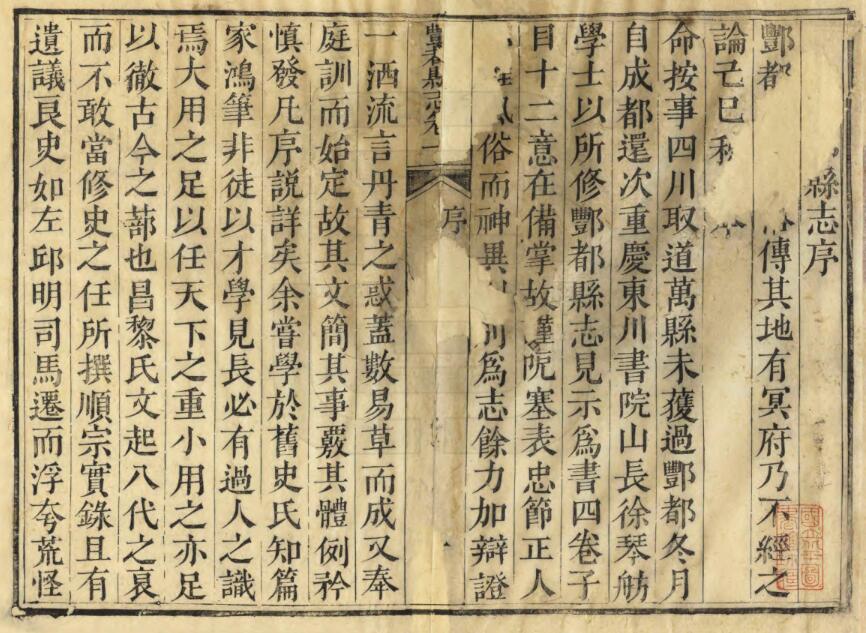 縣志序
酆都傳其地有冥府乃不經之
論己巳
命按事四川取道萬縣未獲過酆都冬月
自成都還次重慶東川書院山長徐琴舫
學士以所修酆都縣志見示爲書四卷子
目十二意在備掌故謹阨塞表忠節正人
俗而神異爲志餘力加辯證
縣志卷一
序
一洒流言丹青之惑蓋數易草而成又奉
庭訓而始定故其文簡其事覈其體例矜
慎發凡序說詳矣余嘗學於舊史氏知篇
家鴻筆非徒以才學見長必有過人之識
焉大用之足以任天下之重小用之亦足
以徹古今之蔀也昌黎氏文起八代之衰
而不敢當修史之任所撰順宗實錄且有
遺議良史如左邱明司馬遷而浮夸荒怪